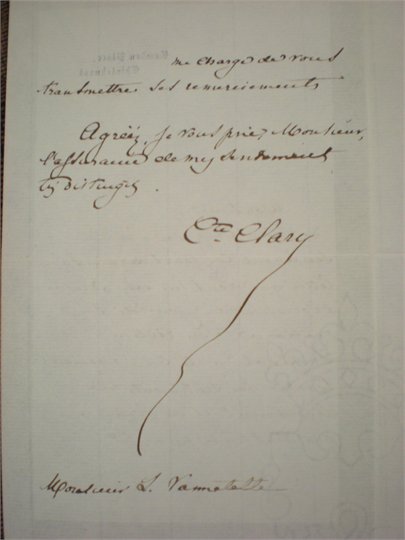 me charge de vous
transmettre ses remerciements
Agréez, je vous prie, Monsieur,
l'assurance de mes sentiments
très distingués.
Cte Clary
Monsieur L.
Camden Place,
Chislehurst